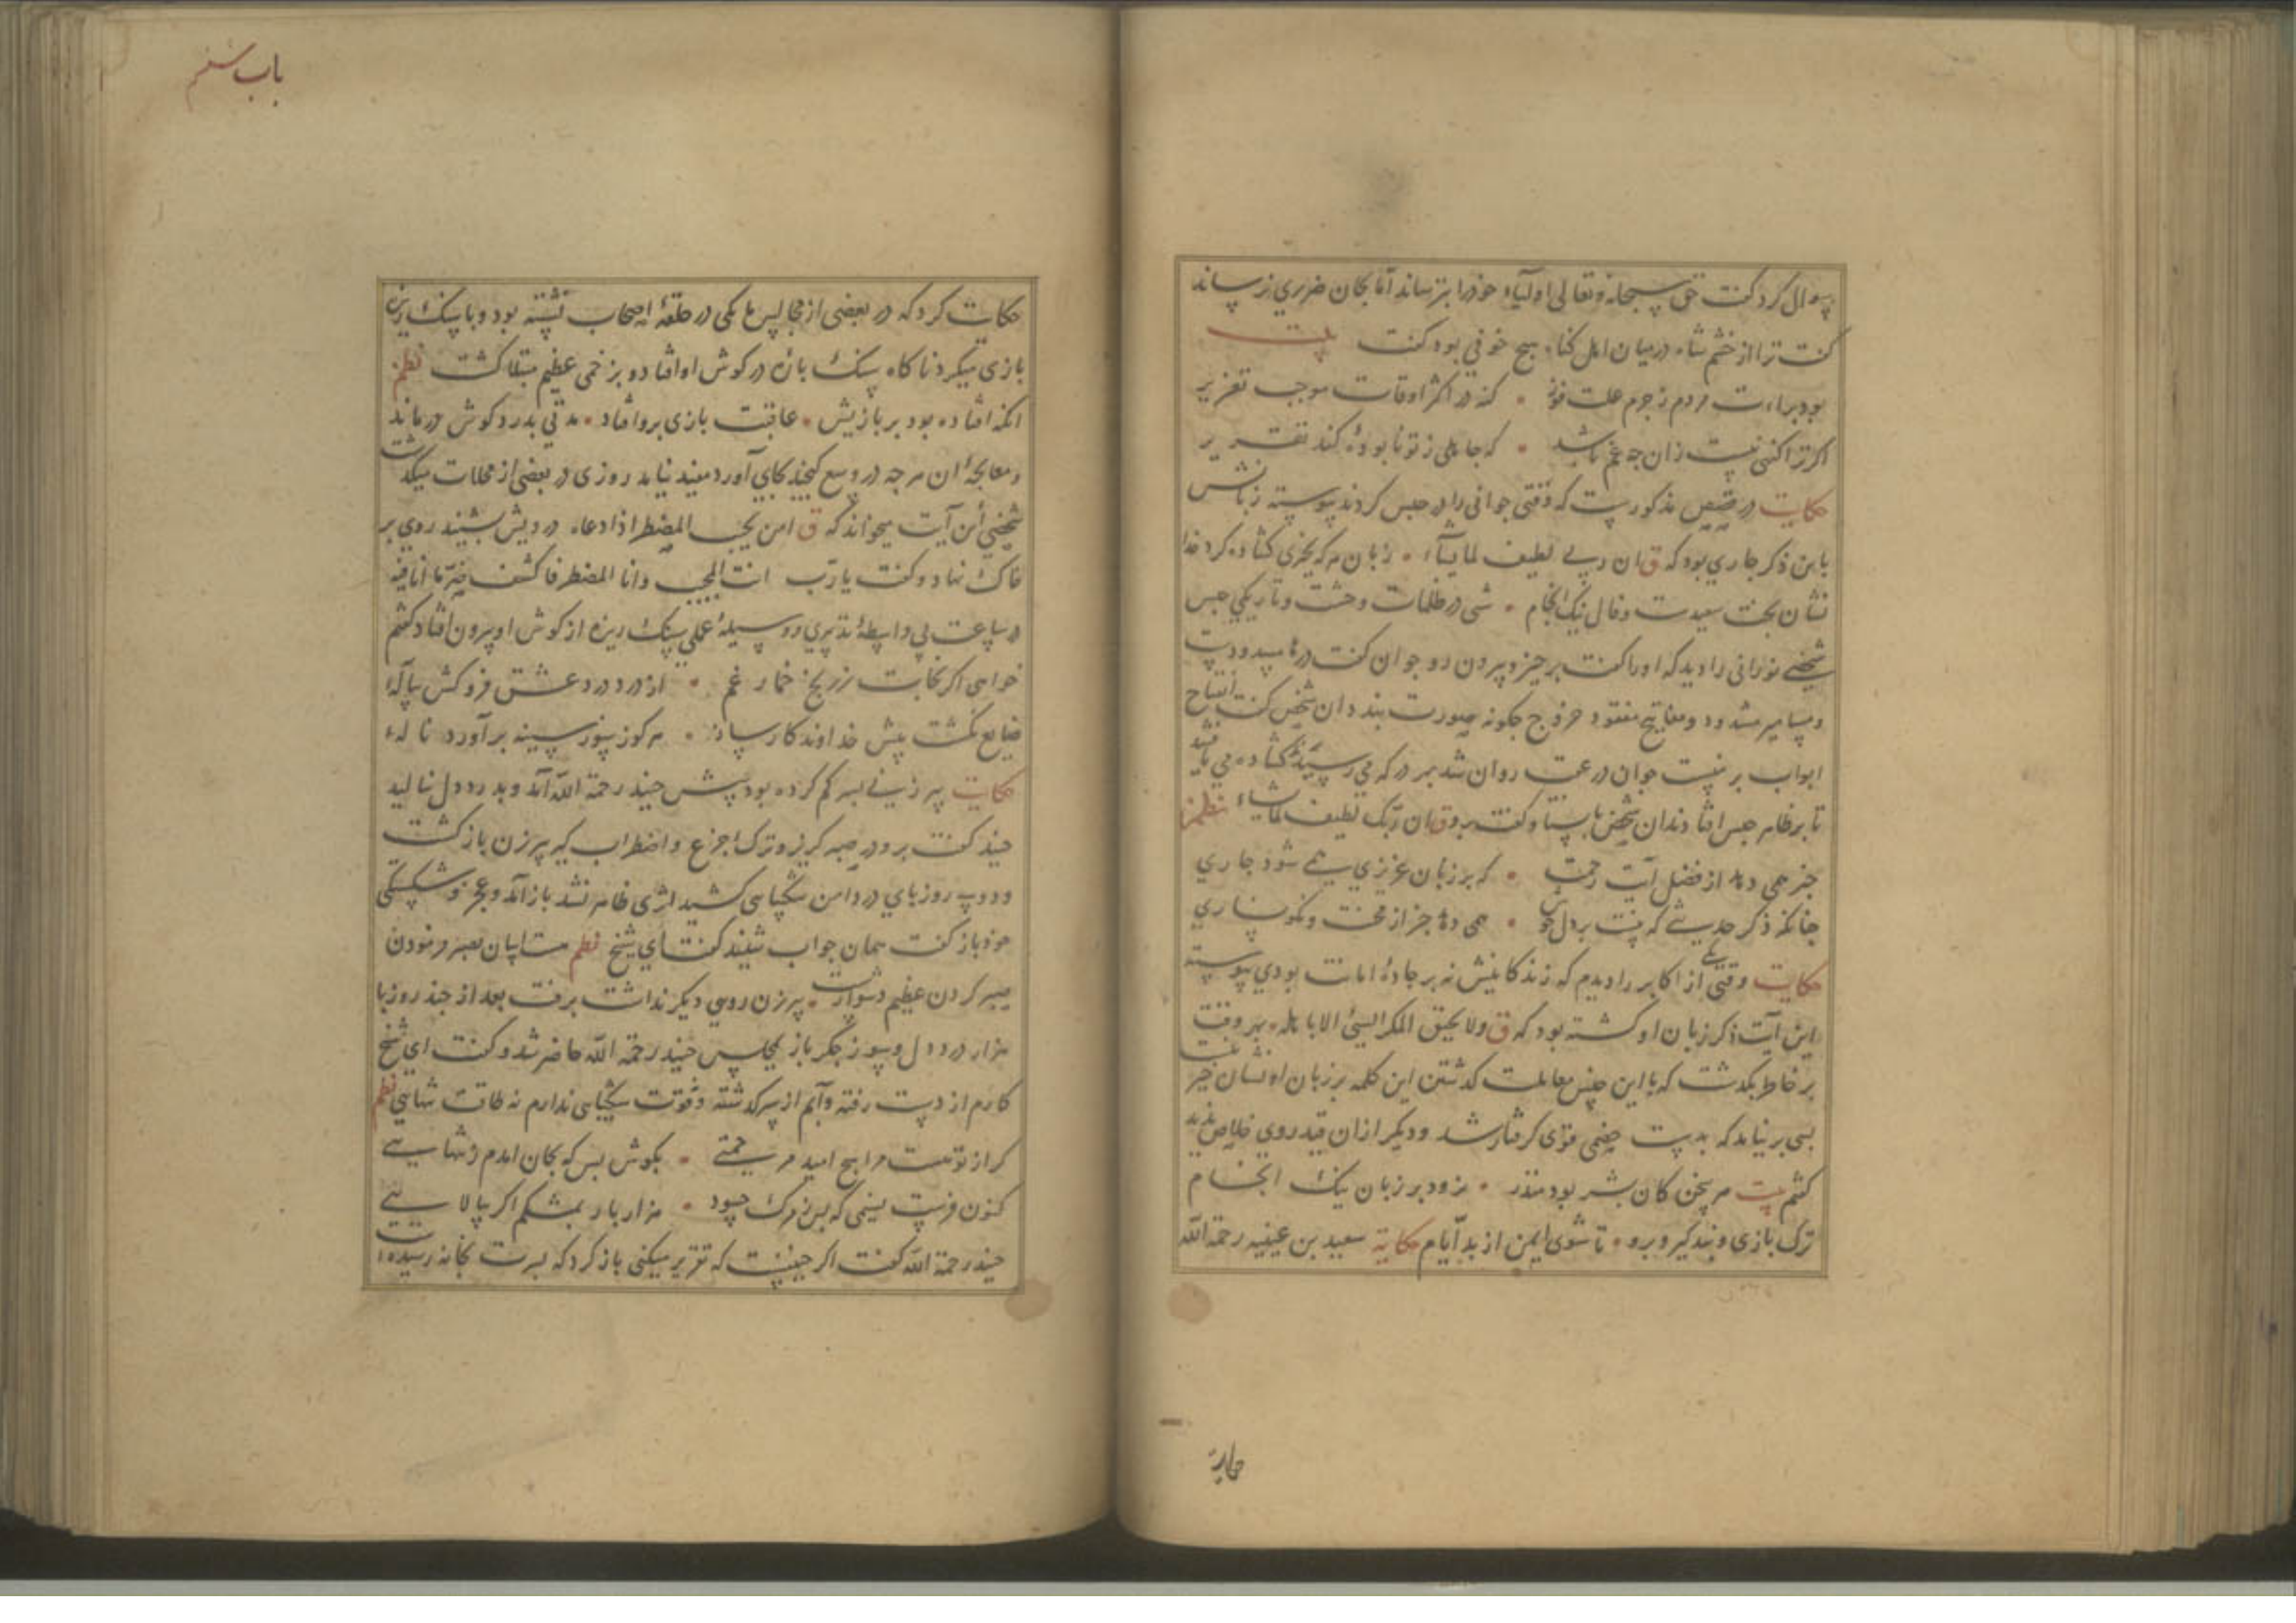 سوال کرد کفت حق سبحانه و تعالی اولیاء خود را بترساند اما بجان ضرری نرساند
کفت ترا از خشم شاه در میان اهل کناه هیچ خوفی بود کفت بیت
بود براءت مردم ز جرم علت فوز • که در اکثر اوقات موجب تعزیر
اکر ترا کنهی نیست زان چه غم باشد • که جاهلی ز تو نابوده کند تقریر
حکایت در قصص مذکورست که وقتی جوانی را در حبس کردند پیوسته زبانش
باین ذکر جاری بود که ق ان ربی لطیف لما یشاء • زبان هر که بخیری کشاده کرد خدا
نشان بخت سعیدست و فال نیک انجام • شبی در ظلمات وحشت و تاریکی حبس
شخصی نورانی را دید که او را کفت برخیز و بیرون رو جوان کفت درها مسدودست
و مسامیر مشدود و مفاتیح مفقود خروج چکونه صورت بندد ان شخص کفت افتتاح
ابواب بر نیست جوان در عقب روان شد بهر در که می رسید کشاده می یافتند
تا بر ظاهر حبس افتادند ان شخص بایستاد و کفت برو ق ان ربک لطیف لما یشاء نظم
خبر همی دهد از فضل آیت رحمت • که بر زبان عزیزی همی شود جاری
چنانکه ذکر حدیثی که نیست بر دل خوش • همی دهد خبر از محنت و نکونساری
حکایت وقتی یکی از اکابر را دیدم که زندکانیش نه بر جادۀ امانت بودی پیوسته
این آیت ذکر زبان او کشته بود که ق ولا یحیق المکر السیئ الا باهله • بهر وقت
بر خاطر بکذشت که با این جنس معاملت کذشتن این کلمه بر زبان او نشان خیر نیست
بسی بر نیامد که بدست خصمی قوی کرفتار شد و دیکر از ان قید روی خلاص ندید
کفتم بیت هر سخن کان بشر بود منذر • نرود بر زبان نیک انجام
ترک بازی و پند کیر و برو • تا شوی ایمن از بد ایام حکایة سعید بن عیینه رحمة الله
حکایت
باب ششم
حکایت کرد که در بعضی از مجالس ما یکی در حلقۀ اصحاب نشسته بود و با سنک ریزه
بازی میکرد ناکاه سنک پاره در کوش او افتاد و بزخمی عظیم مبتلا کشت نظم
انکه افتاده بود بر بازیش • عاقبت بازی برو افتاد • مدتی بدرد کوش درماند
و معالجۀ ان هر چه در وسع کنجید بجای آورد مفید نیامد روزی در بعضی از محلات میکذشت
شخصی این آیت میخواند که ق امن یجیب المضطر اذا دعاه درویش بشنید روی بر
خاک نهاد و کفت یا رب انت المجیب و انا المضطر فاکشف ضر ما انا فیه
در ساعت بی واسطۀ تدبیری و وسیلۀ عملی سنک ریزه از کوش او بیرون افتاد کفتم
خواهی اکر نجابت ز رنج خمار غم • از درد درد عشق فرو کش پیالۀ
ضایع نکشت پیش خداوند کارساز • هر کو ز سوز سینه برآورد نالۀ
حکایت پیر زنی پسر کم کرده بود پیش جنید رحمة الله آمد و بدرد دل بنالید
جنید کفت برو و در صبر کریز و ترک جزع و اضطراب کیر پیرزن باز کشت
و دو سه روز پای در دامن شکیبایی کشید اثری ظاهر نشد باز آمد و عجز و شکستکی
خود باز کفت همان جواب شنید کفت ای شیخ نظم هست آسان بصبر فرمودن
صبر کردن عظیم دشوارست • پیرزن روی دیکر نداشت برفت بعد از چند روز با
هزار درد دل و سوز جکر باز بمجلس جنید رحمة الله حاضر شد و کفت ای شیخ
کارم از دست رفته و آبم از سر کذشته و قوت شکیبایی ندارم نه طاقت تنهایی نظم
کر از تو هست مرا هیچ امید مرحمتی • بکوش بس که بجان امدم ز تنهایی
کنون فرست نسیمی که پس ز مرک چسود • هزار بار بمشکم اکر بیالایی
جنید رحمة الله کفت اکر چنینست که تقریر میکنی باز کرد که پسرت بخانه رسیده است